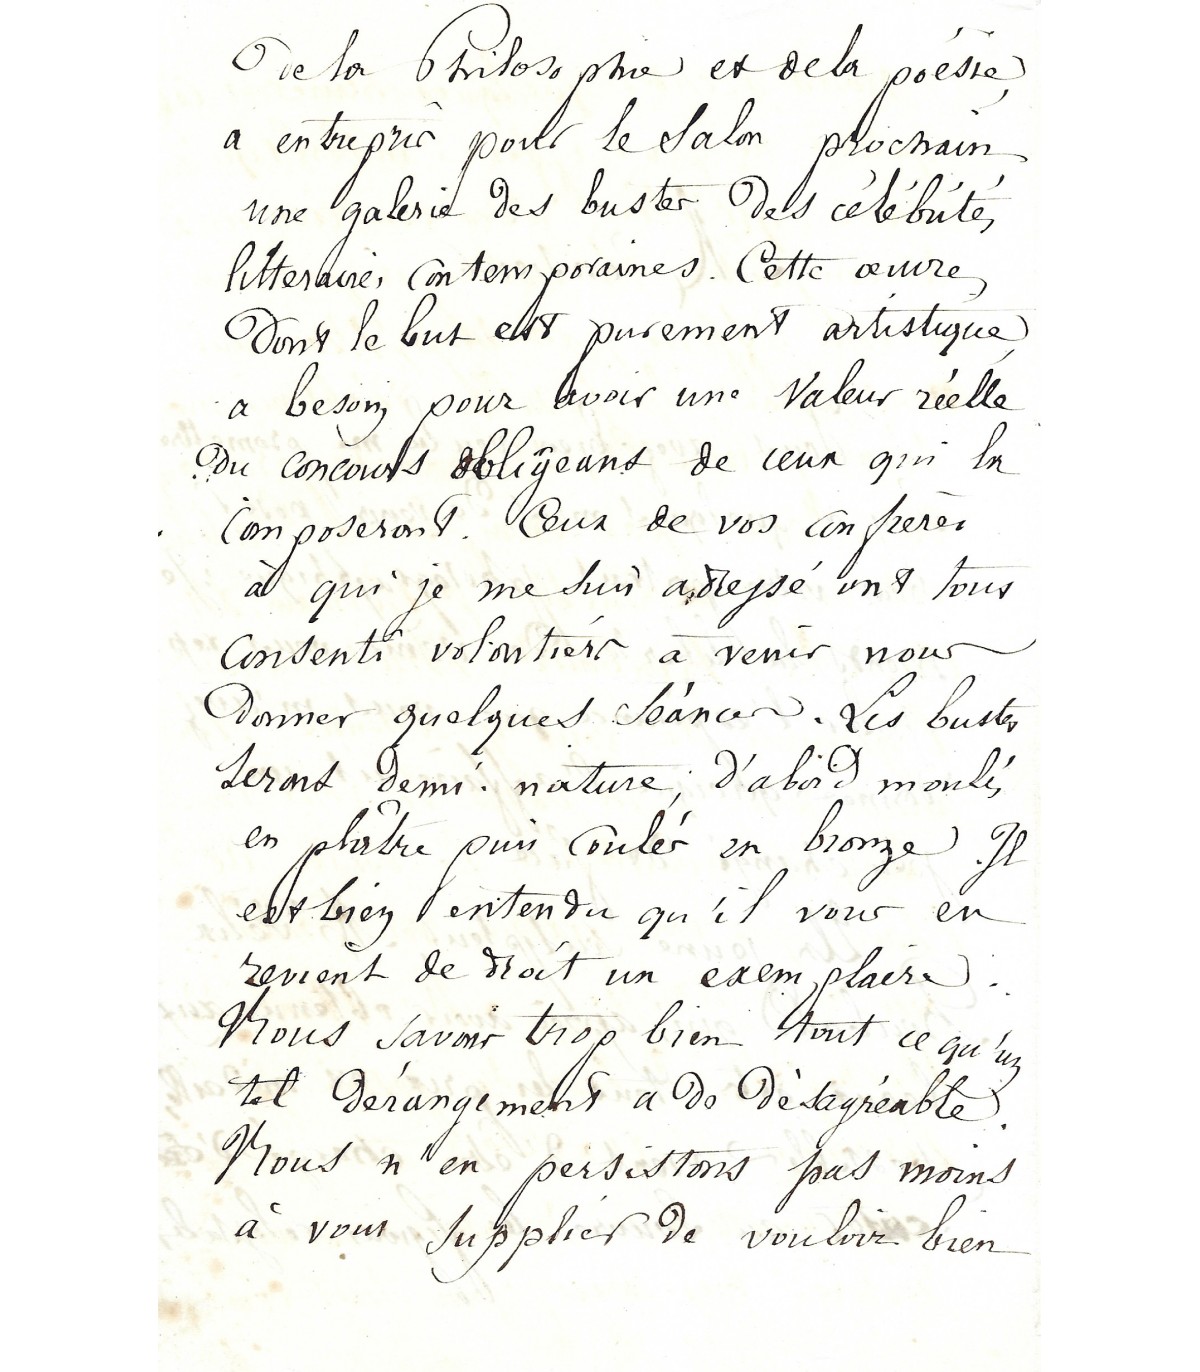 De la Philosophie et de la poésie,
a entrepris pour le Salon prochain
une galerie des bustes des célébrités
littéraires contemporaines. Cette œuvre,
Dont le but est purement artistique,
a besoin pour avoir une valeur réelle
Du concours obligeant de ceux qui la
composeront. Ceux de vos confrères
à qui je me suis adressé ont tous
consenti volontiers à venir nous
donner quelques séances. Les bustes
seront demi-nature, d'abord moulés
en plâtre puis coulés en bronze. Il
est bien entendu qu'il vous en
revient de droit un exemplaire.
Nous savons trop bien tout ce qu'un
tel dérangement a de désagréable.
Nous n'en persistons pas moins
à vous supplier de vouloir bien